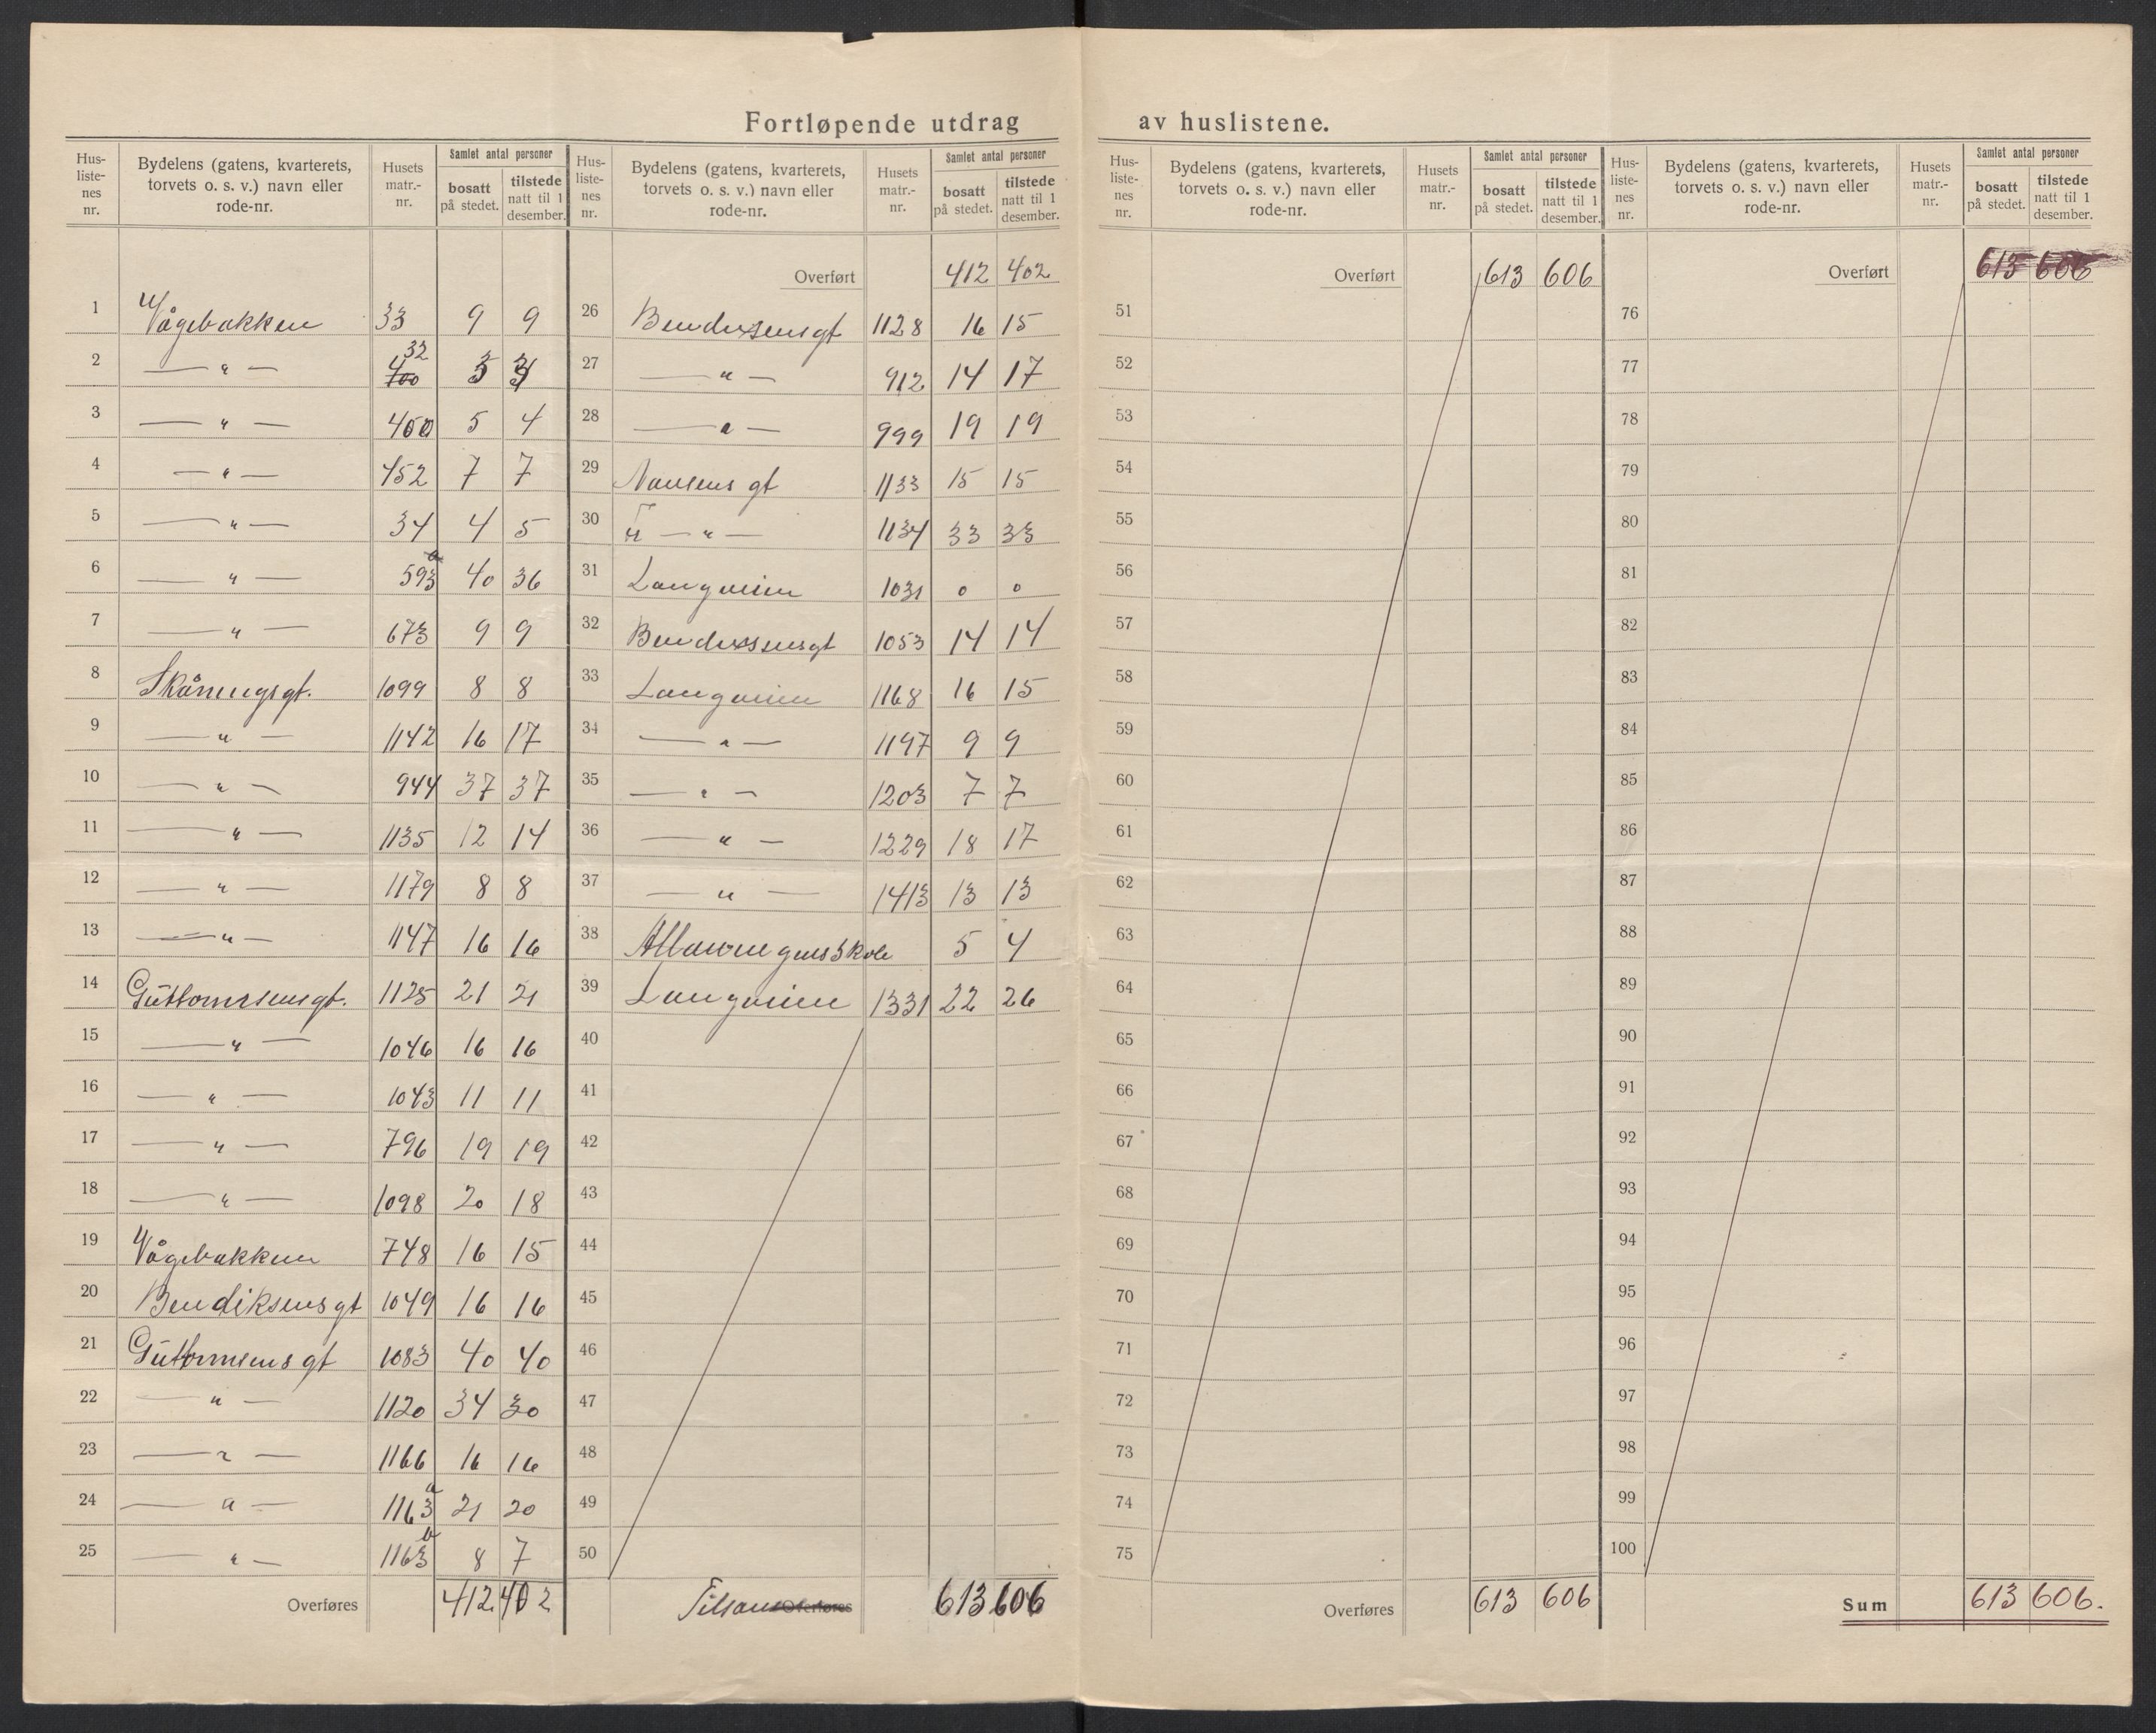 Fortløpende utdrag av huslistene.
Hus-listenes nr. | Bydelens (gatens, kvarterets, torvets o. s. v.) navn eller rode-nr. | Husets matr.-nr. | Samlet antal personer bosatt på stedet. | tilstede natt til 1 desember.
1 Vågebakken 33 9 9
2 — " — 400 32 3 3
3 — " — 400 5 4
4 — " — 452 7 7
5 — " — 34 4 5
6 — " — 593 a 40 36
7 — " — 673 9 9
8 Skåningsgt. 1099 8 8
9 — " — 1142 16 17
10 — " — 944 37 37
11 — " — 1135 12 14
12 — " — 1179 8 8
13 — " — 1147 16 16
14 Guttormsensgt. 1125 21 21
15 — " — 1046 16 16
16 — " — 1043 11 11
17 — " — 796 19 19
18 — " — 1098 20 18
19 Vågebakken 748 16 15
20 Bendiksensgt 1049 16 16
21 Guttormsensgt 1083 40 40
22 — " — 1120 34 30
23 — " — 1166 16 16
24 — " — 1163 a 21 20
25 — " — 1163 b 8 7
Overføres 412 402
Hus-listenes nr. | Bydelens (gatens, kvarterets, torvets o. s. v.) navn eller rode-nr. | Husets matr.-nr. | Samlet antal personer bosatt på stedet. | tilstede natt til 1 desember.
Overført 412 402
26 Bendixsensgt 1128 16 15
27 — " — 912 14 17
28 — " — 999 19 19
29 Nansens gt 1133 15 15
30 " — " — 1134 33 33
31 Langveien 1031 0 0
32 Bendixsensgt 1053 14 14
33 Langveien 1168 16 15
34 — " — 1197 9 9
35 — " — 1203 7 7
36 — " — 1229 18 17
37 — " — 1413 13 13
38 Allmenningens skole 5 4
39 Langveien 1331 22 26
40
41
42
43
44
45
46
47
48
49
50
Tilsam Overføres 613 606
Hus-listenes nr. | Bydelens (gatens, kvarterets, torvets o. s. v.) navn eller rode-nr. | Husets matr.-nr. | Samlet antal personer bosatt på stedet. | tilstede natt til 1 desember.
Overført 613 606
51
52
53
54
55
56
57
58
59
60
61
62
63
64
65
66
67
68
69
70
71
72
73
74
75
Overføres 613 606
Hus-listenes nr. | Bydelens (gatens, kvarterets, torvets o. s. v.) navn eller rode-nr. | Husets matr.-nr. | Samlet antal personer bosatt på stedet. | tilstede natt til 1 desember.
Overført 613 606
76
77
78
79
80
81
82
83
84
85
86
87
88
89
90
91
92
93
94
95
96
97
98
99
100
Sum 613 606.